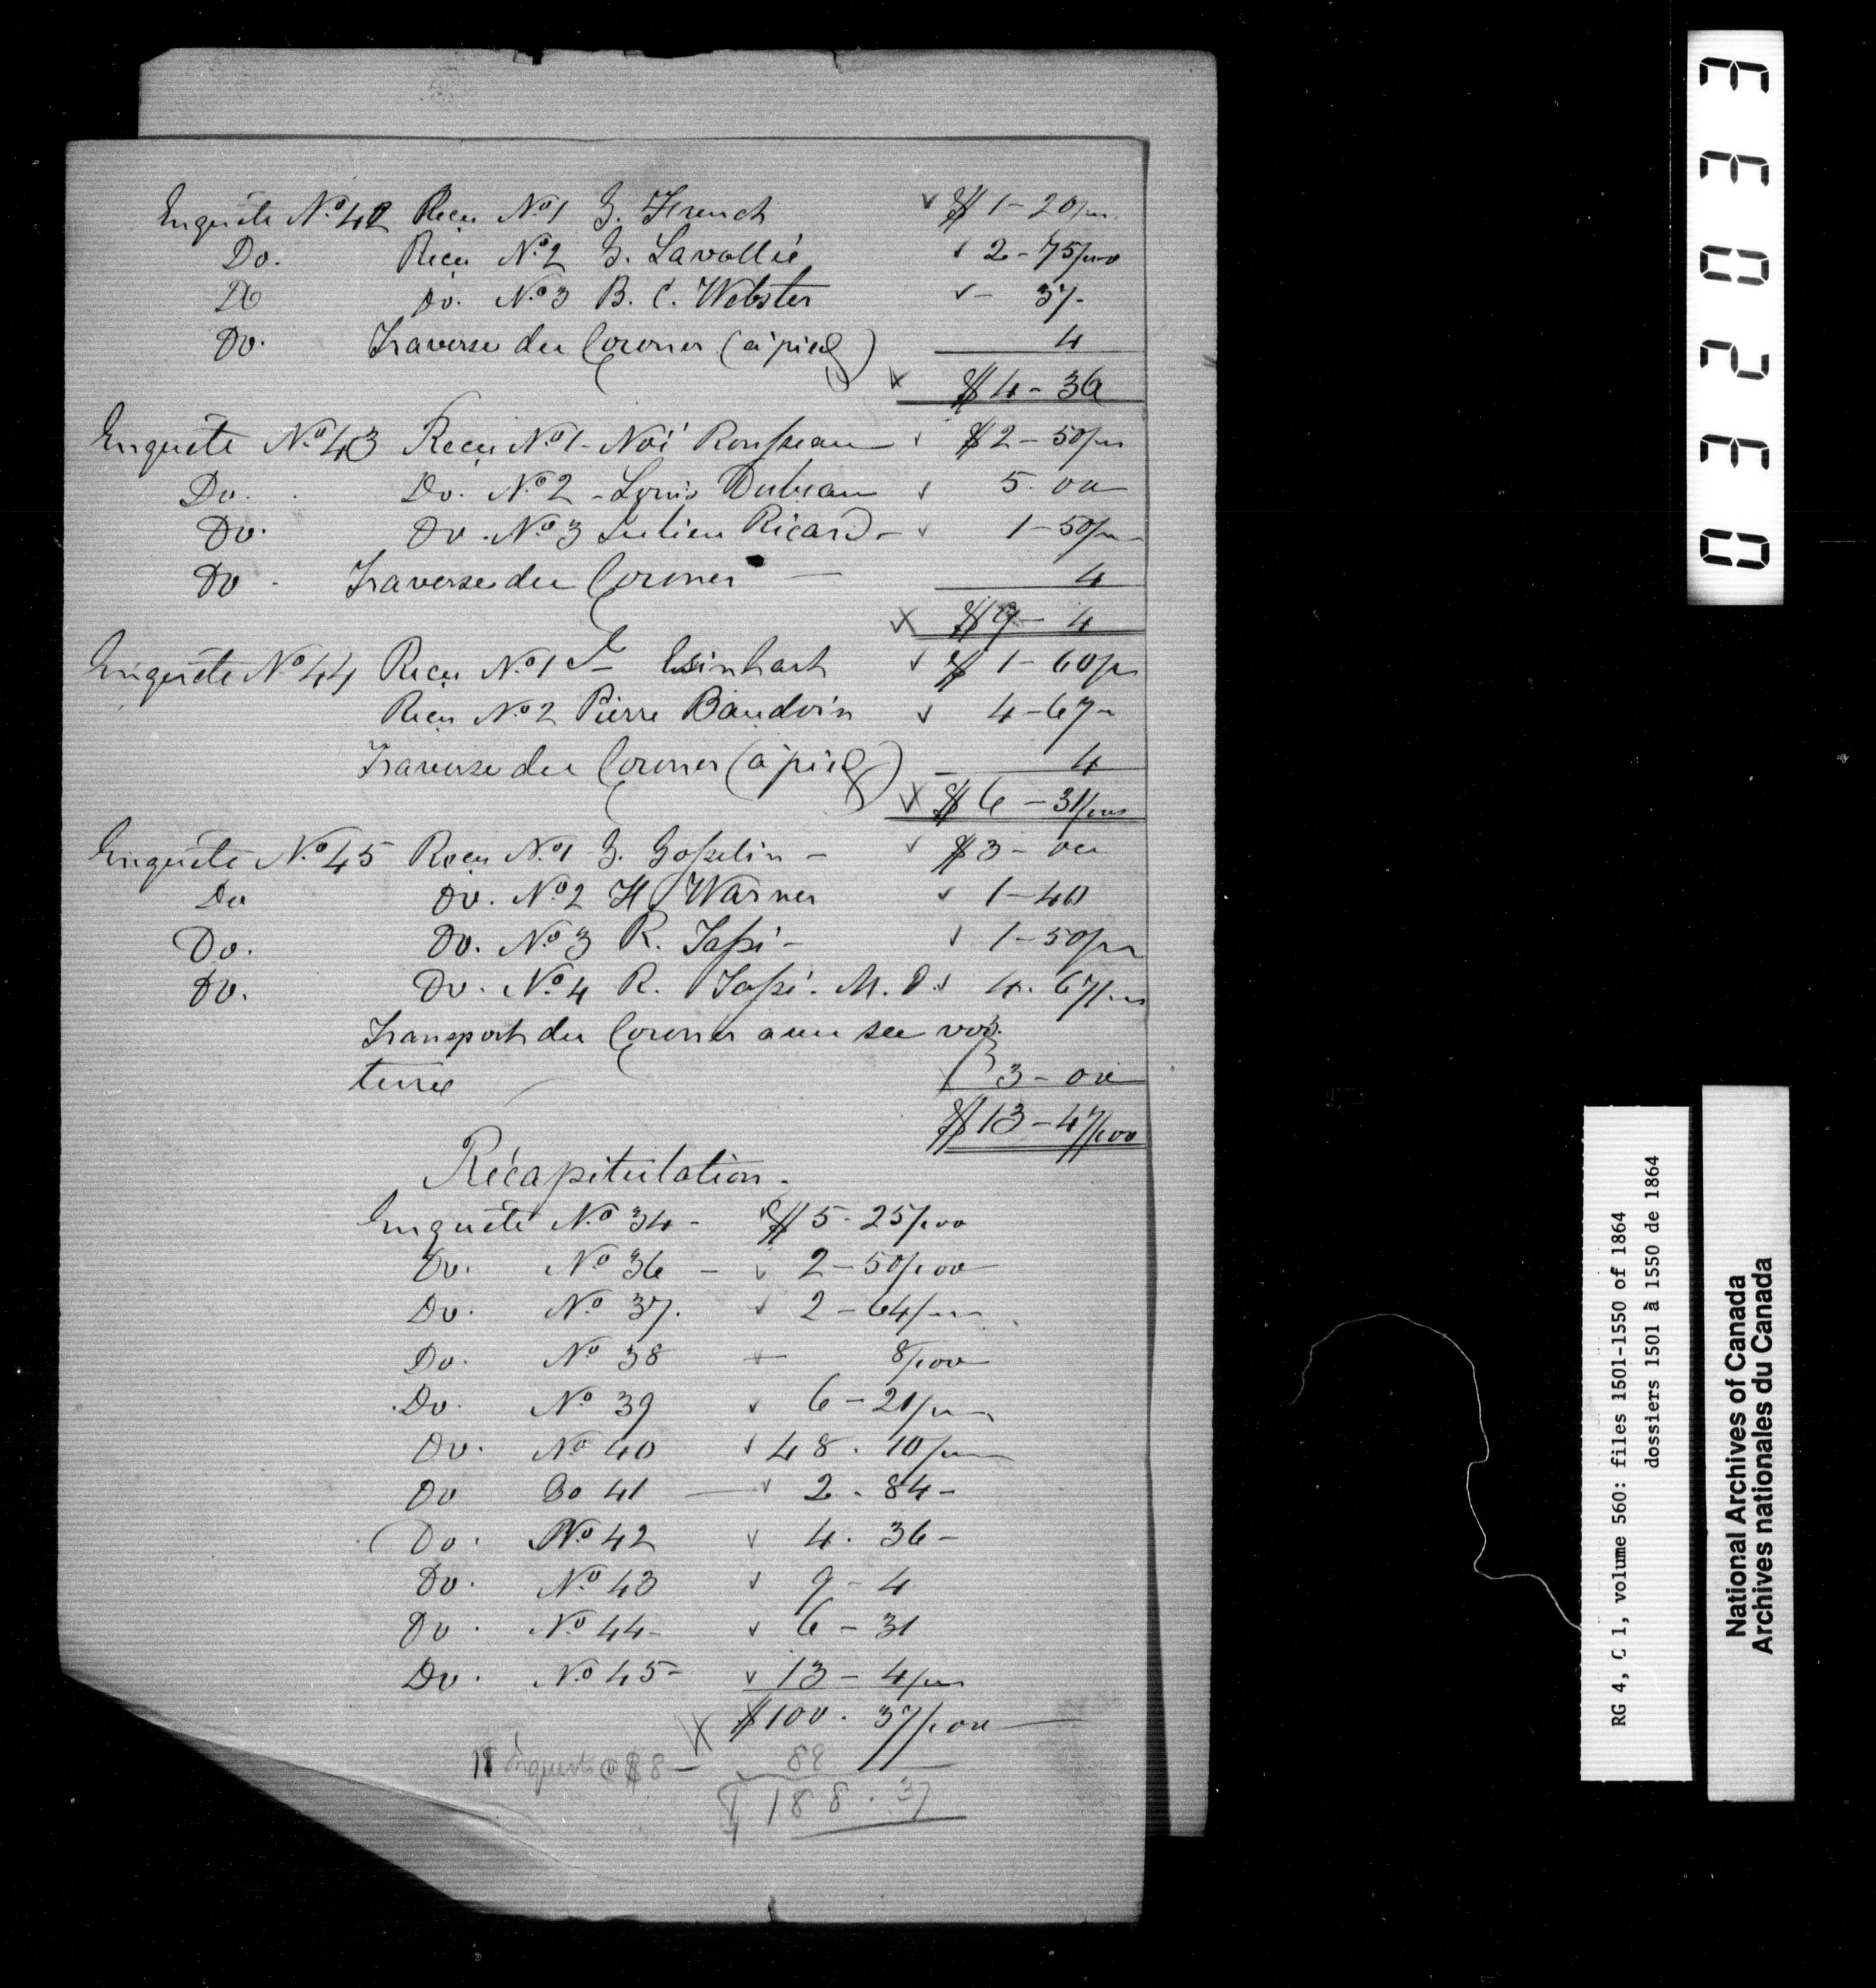 Enquête No. 42 Reçu No 1 G. French $ 1-20/100
Do. Reçu No. 2 G. Lavallée 2-75/100
Do Do. No. 3 B. C. Webster - 37-
Do. Traverse du Coroner (à pied) 4
$4-36
Enquête No. 43 Reçu No. 1 - Noë Rousseau $2-50/100
Do. Do. No. 2 - Louis Dubeau 5.00
Do. Do. No. 3 Julien Ricard - 1-50/100
Do - Traverse du Coroner — 4
$9-4
Enquête No. 44 Reçu No. 1 $ 1-60/100
Reçu No. 2 Pierre Baudoin 4-67-
Traverse du Coroner (à pied) 4
$6-31/100
Enquête No. 45 Reçu No. 1 G. Gosselin - $3-00
Do Do. No. 2 H. Warner 1-40
Do. Do. No. 3 R. - 1-50/100
Do. Do. No. 4 R. M. D. 4.67/100
Transport du Coroner
3-00
$13-47/100
Récapitulation.
Enquête No. 34 - $5-25/100
Do. No 36 - 2-50/100
Do. No. 37. 2-64/100
Do. No 38 8/100
Do. No 39 6-21/100
Do. No 40 48.10/100
Do Do 41 — 2.84-
Do. No. 42 4.36-
Do. No. 43 9-4
Do. No. 44- 6-31
Do. No. 45- 13-4/100
$100.37/100
11 Inquests @ $8 - 88
$188.37
033033
RG 4, C 1, volume 560: files 1501-1550 of 1864
dossiers 1501 à 1550 de 1864
National Archives of Canada
Archives nationales du Canada